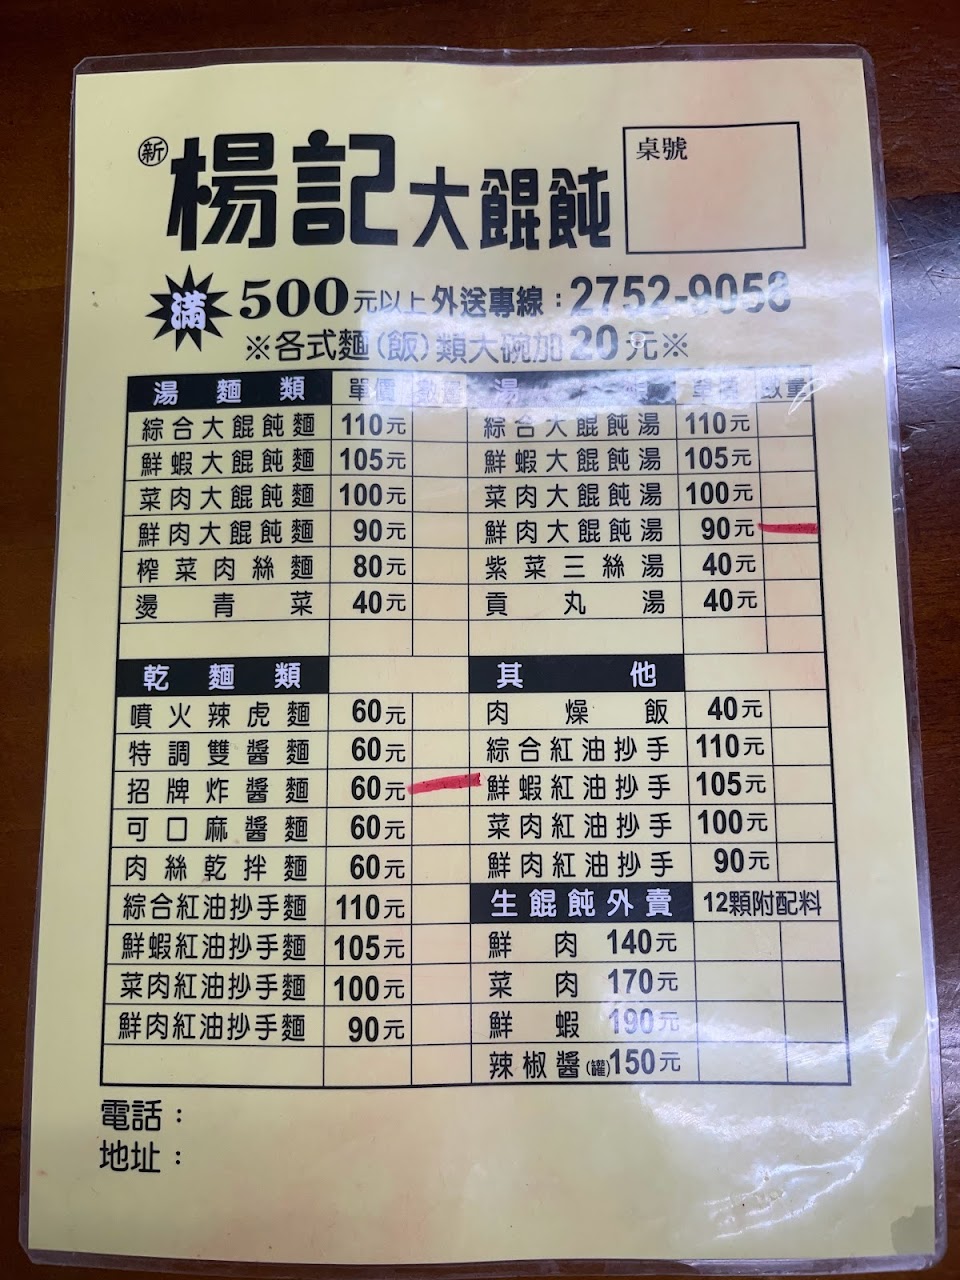 新 楊記大餛飩
桌號
滿500元以上外送專線：2752-9058
※各式麵(飯)類大碗加20元※
湯麵類 單價 數量
綜合大餛飩麵 110元
鮮蝦大餛飩麵 105元
菜肉大餛飩麵 100元
鮮肉大餛飩麵 90元
榨菜肉絲麵 80元
燙青菜 40元
湯 單價 數量
綜合大餛飩湯 110元
鮮蝦大餛飩湯 105元
菜肉大餛飩湯 100元
鮮肉大餛飩湯 90元
紫菜三絲湯 40元
貢丸湯 40元
乾麵類
噴火辣虎麵 60元
特調雙醬麵 60元
招牌炸醬麵 60元
可口麻醬麵 60元
肉絲乾拌麵 60元
綜合紅油抄手麵 110元
鮮蝦紅油抄手麵 105元
菜肉紅油抄手麵 100元
鮮肉紅油抄手麵 90元
其他
肉燥飯 40元
綜合紅油抄手 110元
鮮蝦紅油抄手 105元
菜肉紅油抄手 100元
鮮肉紅油抄手 90元
生餛飩外賣 12顆附配料
鮮肉 140元
菜肉 170元
鮮蝦 190元
辣椒醬(罐)150元
電話：
地址：